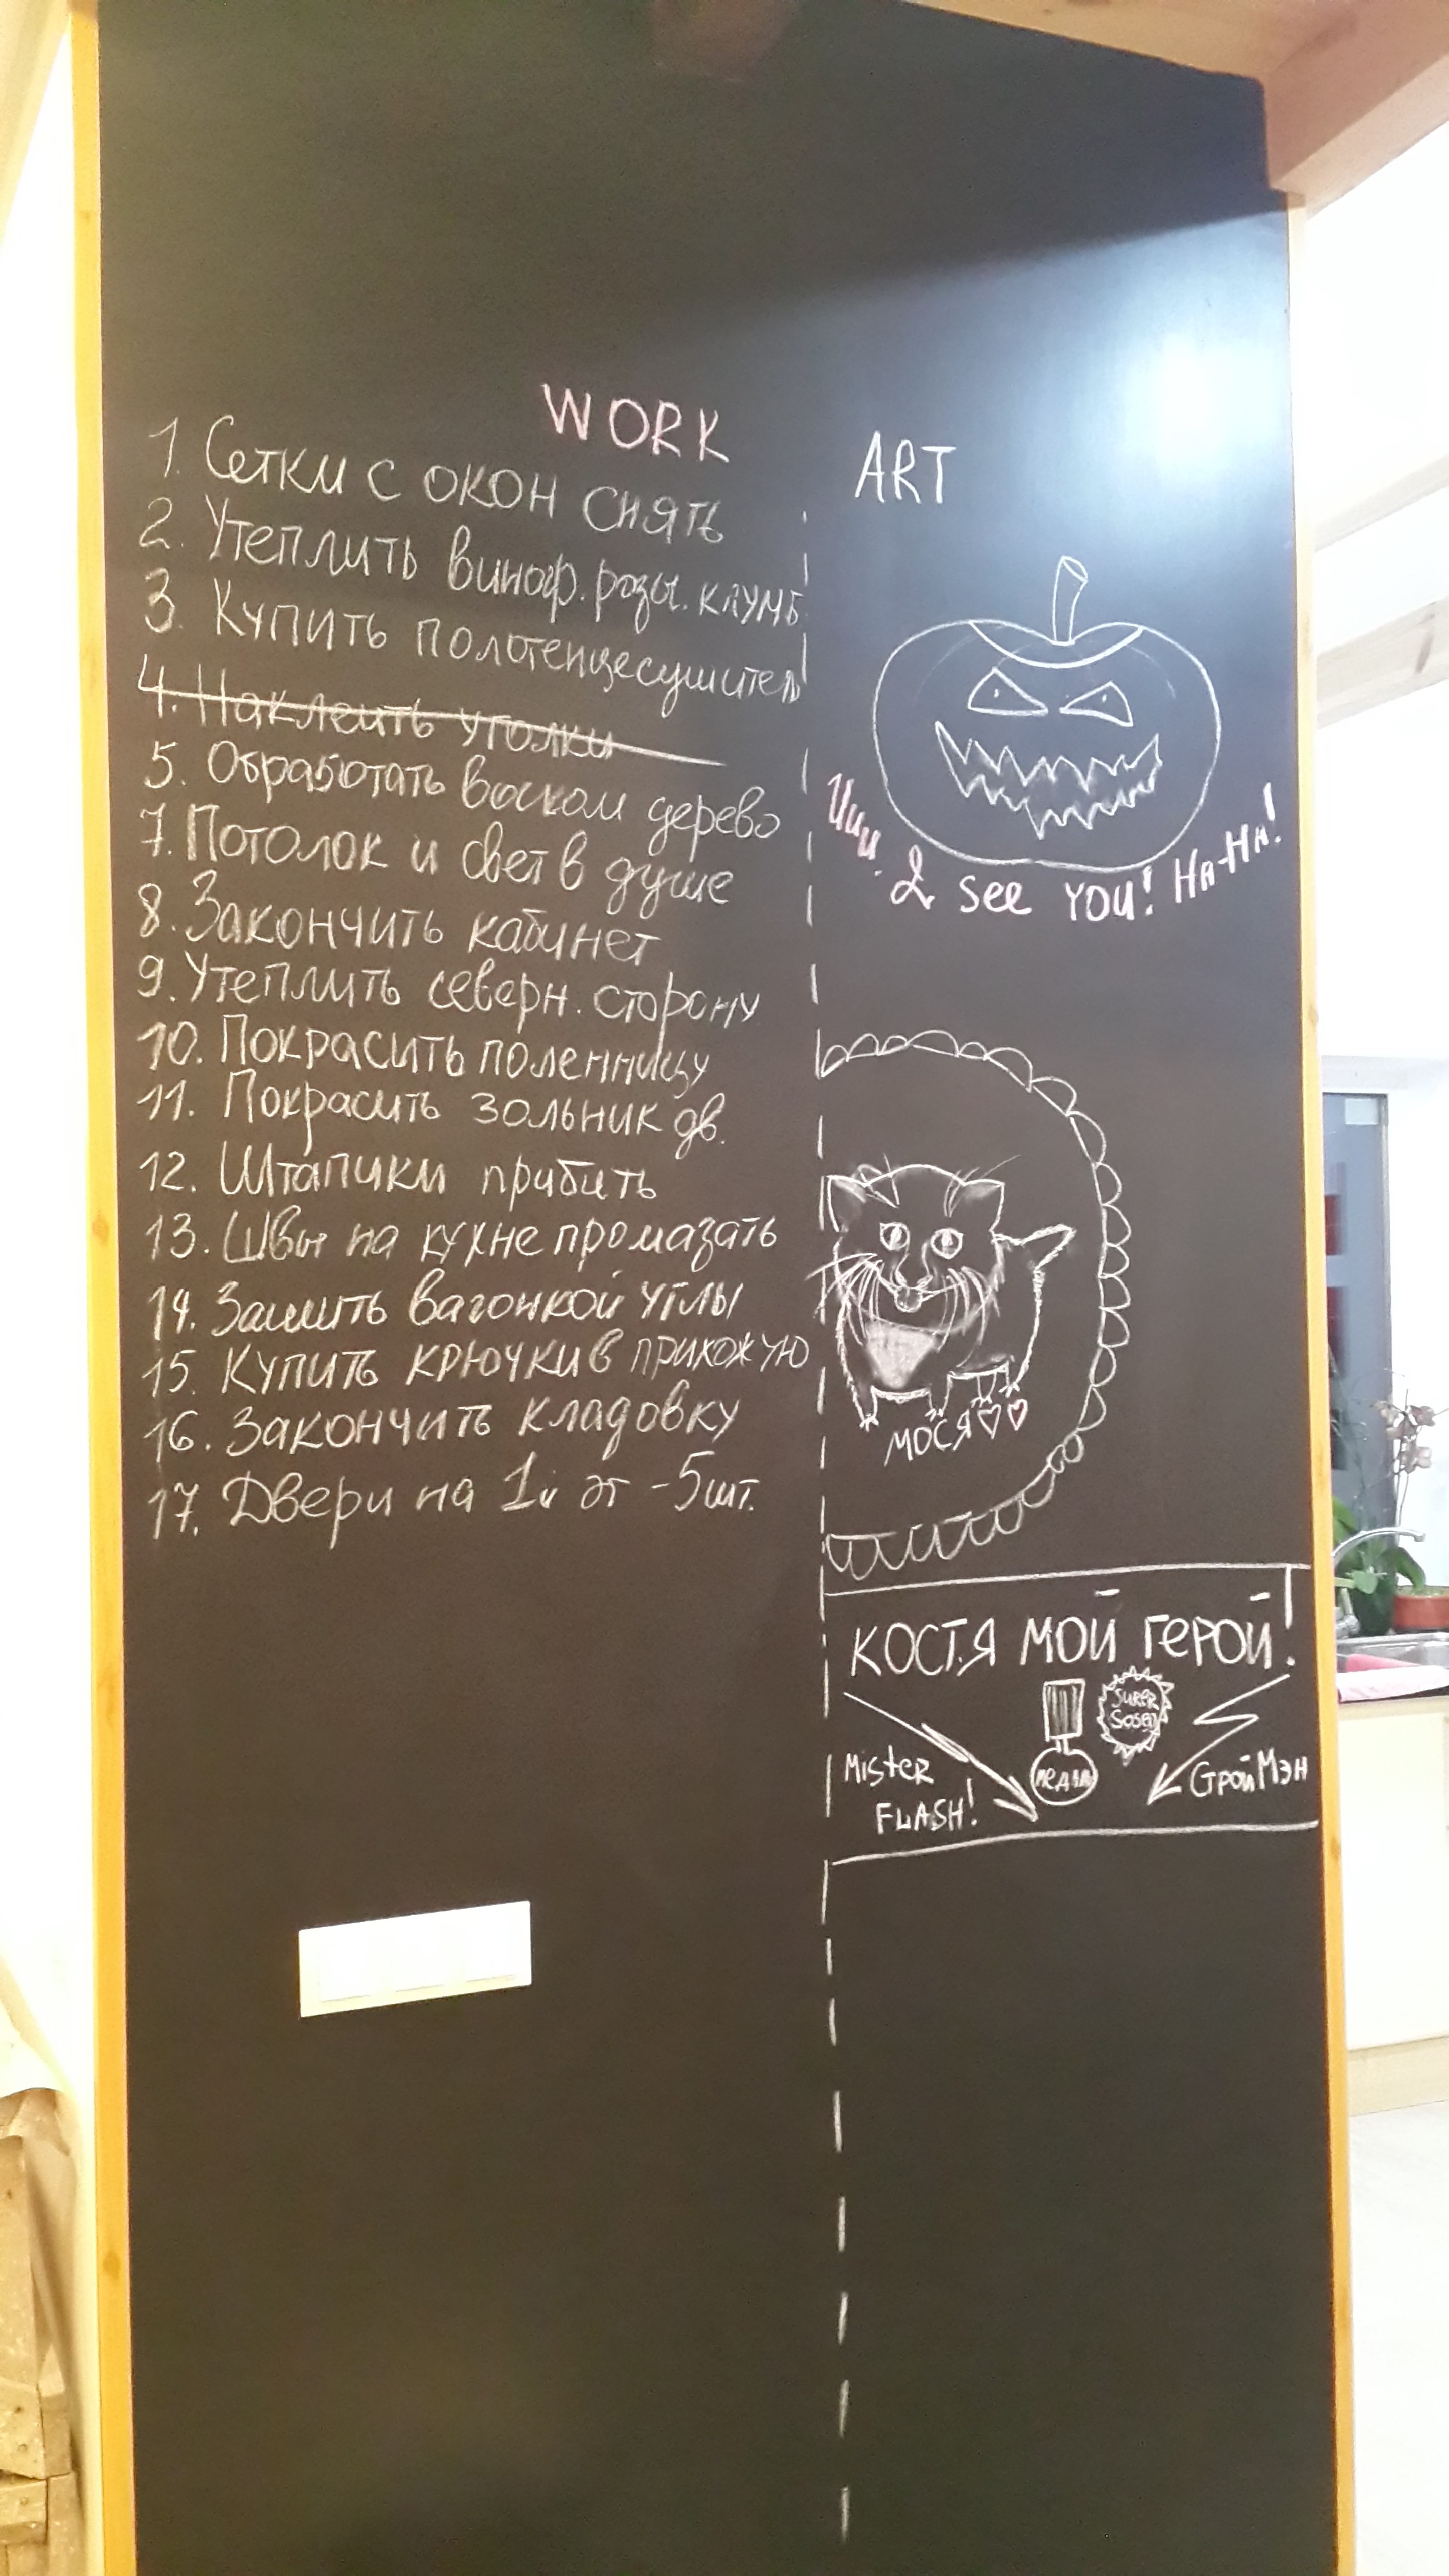 WORK
1. Сетки с окон снять
2. Утеплить виногр. розы. клумб
3. Купить полотенцесушитель
4. Наклеить уголки
5. Обработать воском дерево
7. Потолок и свет в душе
8. Закончить кабинет
9. Утеплить северн. сторону
10. Покрасить поленницу
11. Покрасить зольник дв.
12. Штапики прибить
13. Швы на кухне промазать
14. Зашить вагонкой углы
15. Купить крючки в прихожую
16. Закончить кладовку
17. Двери на 1й эт - 5шт.
ART
see YOU! HA-HA!
МОСЯ
КОСТЯ МОЙ ГЕРОЙ!
SUPER
Sosed
МЕДАЛЬ
Mister
FLASH!
СтройМэн